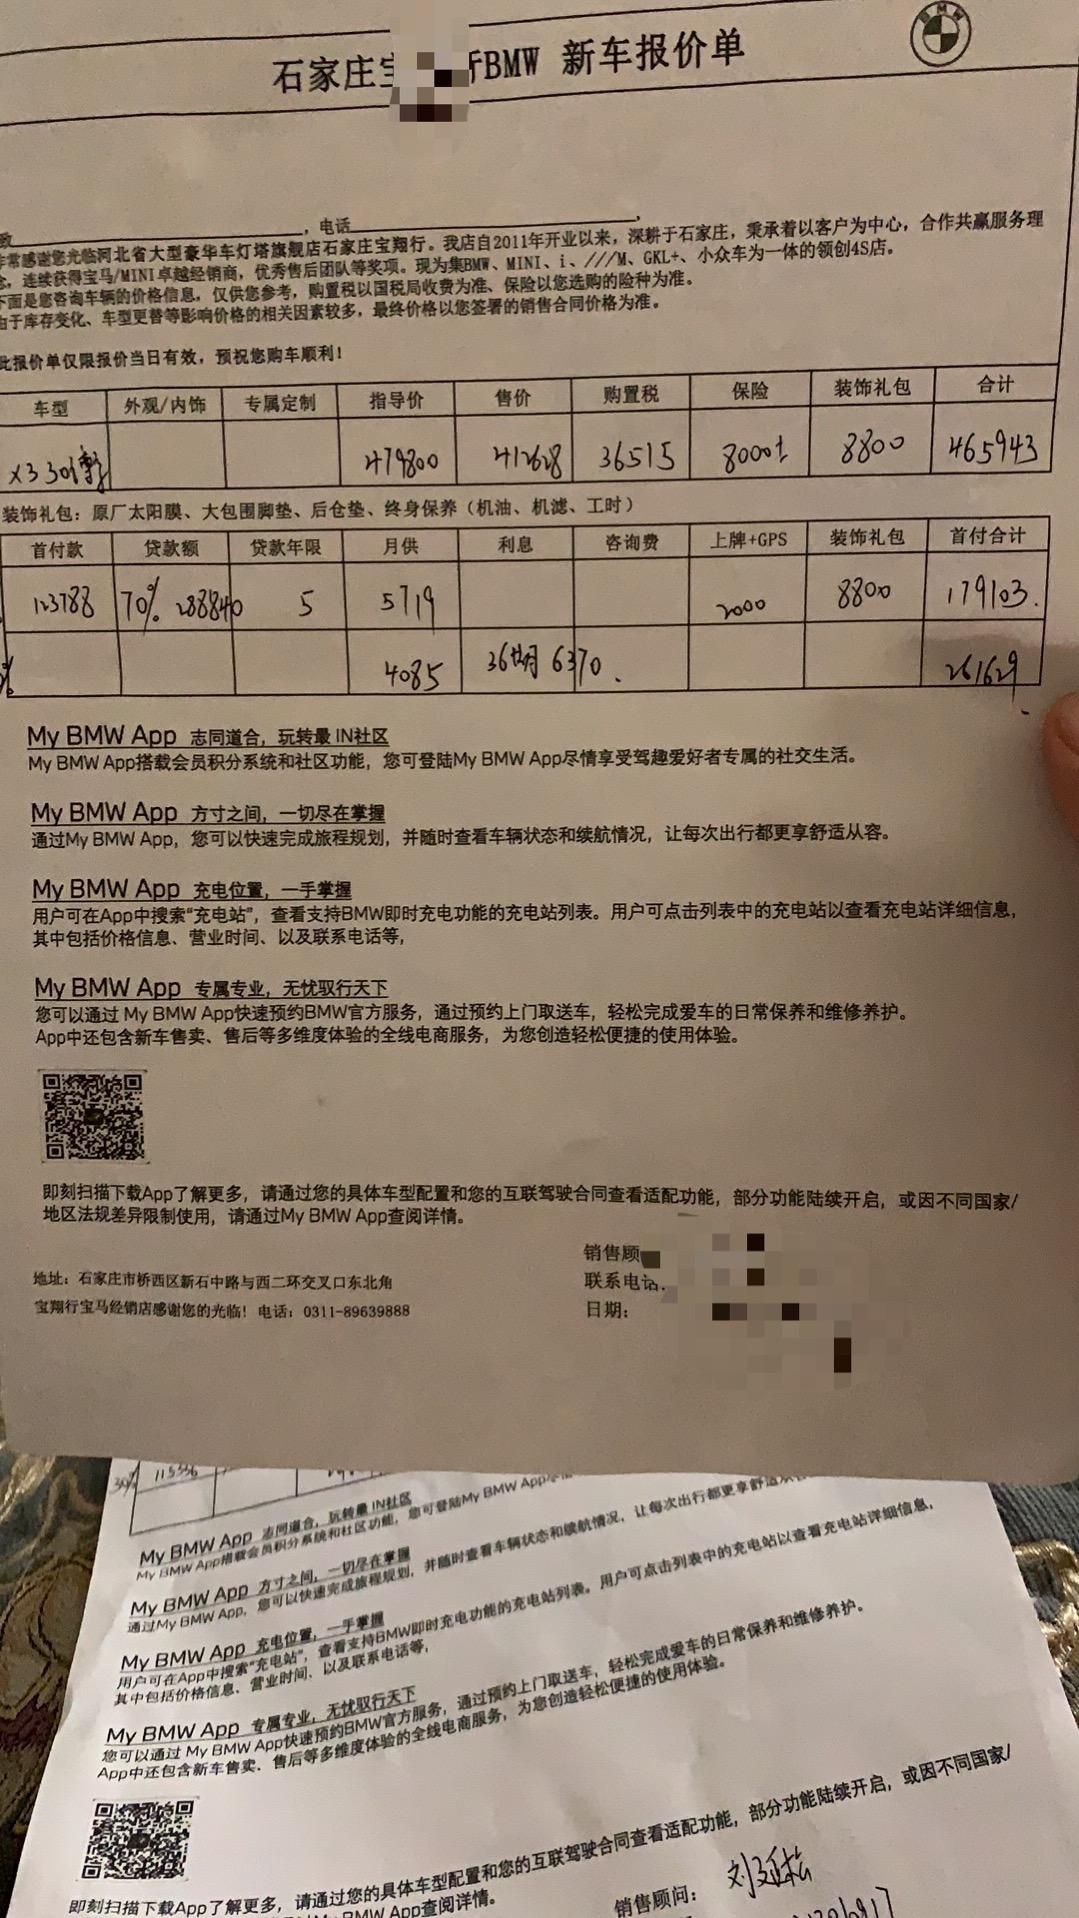 石家庄宝 行BMW 新车报价单
BMW
致 ，电话 ，
非常感谢您光临河北省大型豪华车灯塔旗舰店石家庄宝翔行。我店自2011年开业以来，深耕于石家庄，秉承着以客户为中心，合作共赢服务理
念，连续获得宝马/MINI卓越经销商，优秀售后团队等奖项。现为集BMW、MINI、i、///M、GKL+、小众车为一体的领创4S店。
下面是您咨询车辆的价格信息，仅供您参考，购置税以国税局收费为准、保险以您选购的险种为准。
由于库存变化、车型更替等影响价格的相关因素较多，最终价格以您签署的销售合同价格为准。
此报价单仅限报价当日有效，预祝您购车顺利！
车型 外观/内饰 专属定制 指导价 售价 购置税 保险 装饰礼包 合计
X3 30i 479800 412628 36515 8000± 8800 465943
装饰礼包：原厂太阳膜、大包围脚垫、后仓垫、终身保养（机油、机滤、工时）
首付款 贷款额 贷款年限 月供 利息 咨询费 上牌+GPS 装饰礼包 首付合计
123788 70% 288840 5 5719 2000 8800 179103.
% 4085 36 月 6370. 261629
My BMW App 志同道合，玩转最 IN社区
My BMW App搭载会员积分系统和社区功能，您可登陆My BMW App尽情享受驾趣爱好者专属的社交生活。
My BMW App 方寸之间，一切尽在掌握
通过My BMW App，您可以快速完成旅程规划，并随时查看车辆状态和续航情况，让每次出行都更享舒适从容。
My BMW App 充电位置，一手掌握
用户可在App中搜索“充电站”，查看支持BMW即时充电功能的充电站列表。用户可点击列表中的充电站以查看充电站详细信息，
其中包括价格信息、营业时间、以及联系电话等，
My BMW App 专属专业，无忧驭行天下
您可以通过 My BMW App快速预约BMW官方服务，通过预约上门取送车，轻松完成爱车的日常保养和维修养护。
App中还包含新车售卖、售后等多维度体验的全线电商服务，为您创造轻松便捷的使用体验。
即刻扫描下载App了解更多，请通过您的具体车型配置和您的互联驾驶合同查看适配功能，部分功能陆续开启，或因不同国家/
地区法规差异限制使用，请通过My BMW App查阅详情。
销售顾
联系电话:
日期：
地址：石家庄市桥西区新石中路与西二环交叉口东北角
宝翔行宝马经销店感谢您的光临！电话：0311-89639888
30% 115336
My BMW App 志同道合，玩转最 IN社区
My BMW App搭载会员积分系统和社区功能，您可登陆My BMW App尽情
My BMW App 方寸之间，一切尽在掌握
通过My BMW App，您可以快速完成旅程规划，并随时查看车辆状态和续航情况，让每次出行都更享舒适从容
My BMW App 充电位置，一手掌握
用户可在App中搜索“充电站”，查看支持BMW即时充电功能的充电站列表。用户可点击列表中的充电站以查看充电站详细信息，
其中包括价格信息、营业时间、以及联系电话等，
My BMW App 专属专业，无忧驭行天下
您可以通过 My BMW App快速预约BMW官方服务，通过预约上门取送车，轻松完成爱车的日常保养和维修养护。
App中还包含新车售卖、售后等多维度体验的全线电商服务，为您创造轻松便捷的使用体验。
即刻扫描下载App了解更多，请通过您的具体车型配置和您的互联驾驶合同查看适配功能，部分功能陆续开启，或因不同国家/
My BMW App查阅详情。
销售顾问：